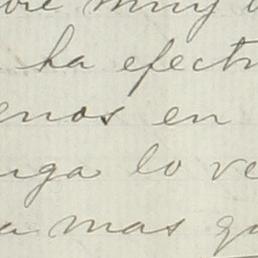 muy
ha efectu
enos en
nga lo ve
a mas qu